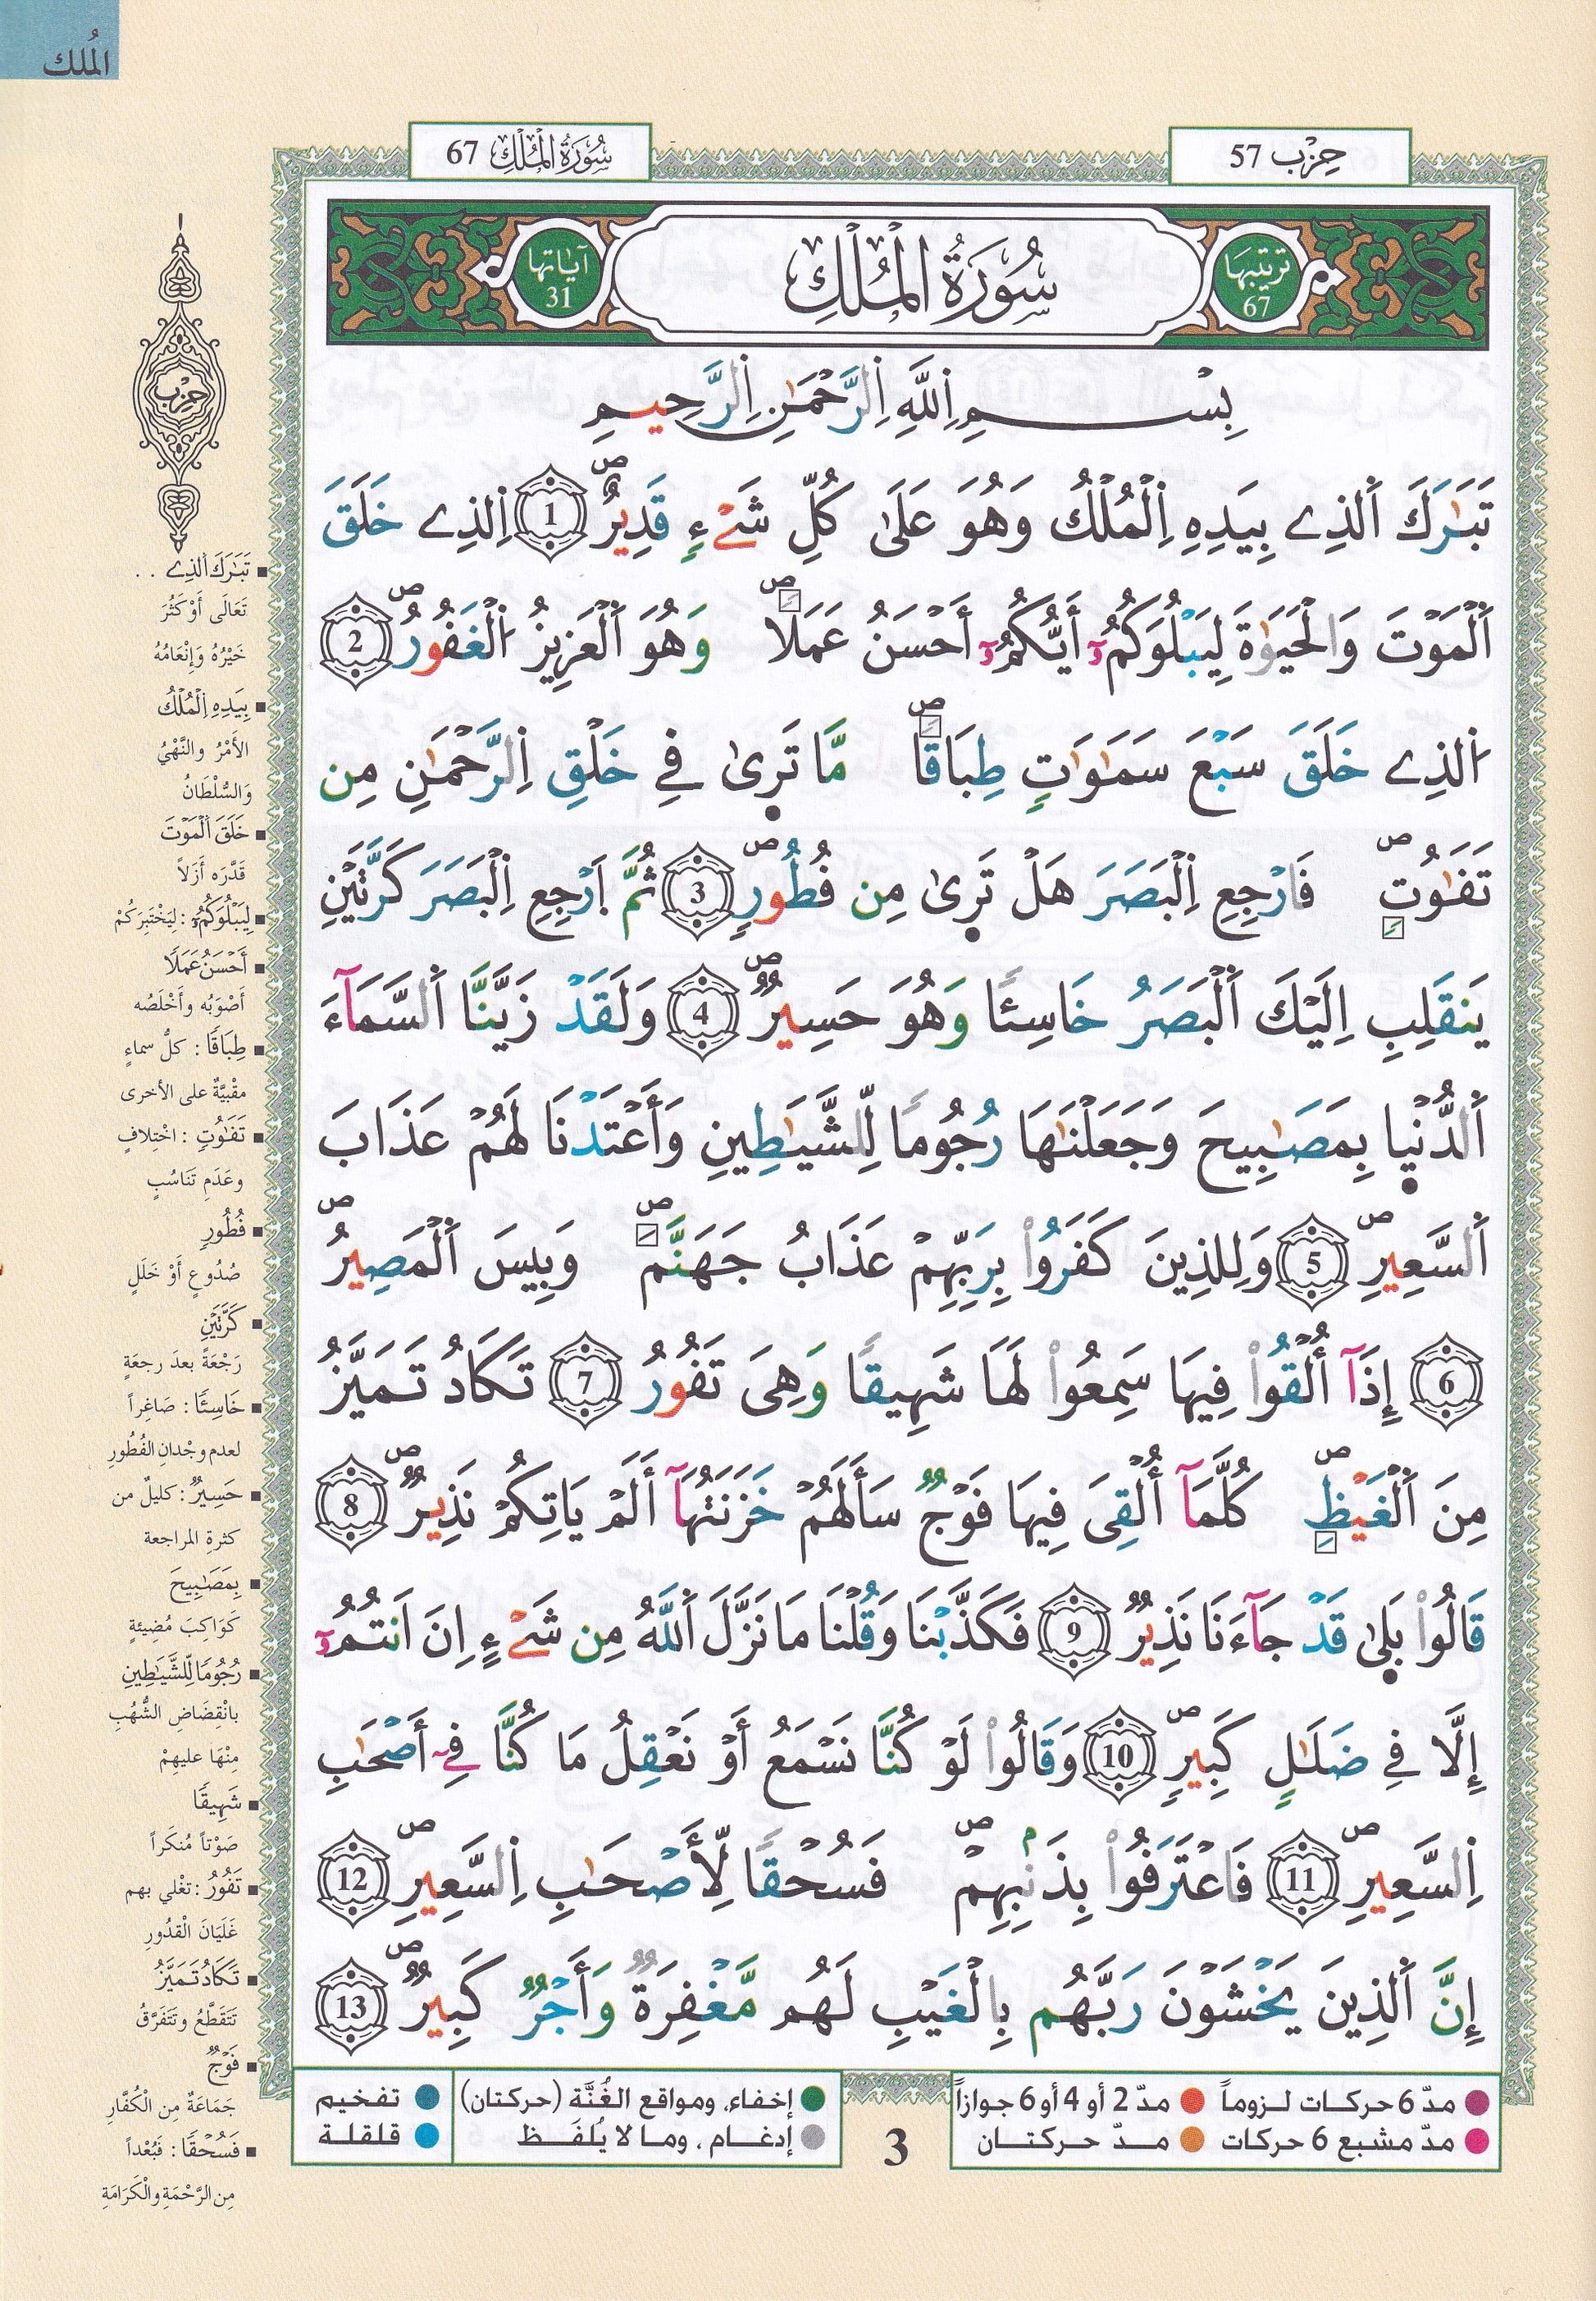 المُلك
حِزْب 57
سُورَةُ الْمُلْكِ 67
تَرتيبُهَا 67
سُورَةُ الْمُلْكِ
آيَاتُها 31
بِسْمِ اِللَّهِ اِلرَّحْمَٰنِ اِلرَّحِيمِ
تَبَٰرَكَ اَلذِے بِيَدِهِ اِلْمُلْكُ وَهُوَ عَلَىٰ كُلِّ شَےْءٖ قَدِيرٌ ۖ 1 اِلذِے خَلَقَ
اَلْمَوْتَ وَالْحَيَوٰةَ لِيَبْلُوَكُمُۥٓ أَيُّكُمُۥٓ أَحْسَنُ عَمَلًا ۖ وَهُوَ اَلْعَزِيزُ اُلْغَفُورُ ۖ 2
اُلذِے خَلَقَ سَبْعَ سَمَٰوَٰتٖ طِبَاقًا ۖ مَّا تَرِىٰ فِے خَلْقِ اِلرَّحْمَٰنِ مِن
تَفَٰوُتٖ ۖ فَارْجِعِ اِلْبَصَرَ هَلْ تَرِىٰ مِن فُطُورٖ ۖ 3 ثُمَّ اَرْجِعِ اِلْبَصَرَ كَرَّتَيْنِ
يَنقَلِبِ اِلَيْكَ اَلْبَصَرُ خَاسِئًا وَهُوَ حَسِيرٌ ۖ 4 وَلَقَدْ زَيَّنَّا اَلسَّمَآءَ
اَلدُّنْيِا بِمَصَٰبِيحَ وَجَعَلْنَٰهَا رُجُومًا لِّلشَّيَٰطِينِ وَأَعْتَدْنَا لَهُمْ عَذَابَ
اَلسَّعِيرِ ۖ 5 وَلِلذِينَ كَفَرُواْ بِرَبِّهِمْ عَذَابُ جَهَنَّمَ ۖ وَبِيسَ اَلْمَصِيرُ ۖ
6 إِذَآ أُلْقُواْ فِيهَا سَمِعُواْ لَهَا شَهِيقًا وَهِىَ تَفُورُ 7 تَكَادُ تَمَيَّزُ
مِنَ اَلْغَيْظِ ۖ كُلَّمَآ أُلْقِىَ فِيهَا فَوْجٌ سَأَلَهُمْ خَزَنَتُهَآ أَلَمْ يَاتِكُمْ نَذِيرٌ ۖ 8
قَالُواْ بَلِىٰ قَدْ جَآءَنَا نَذِيرٌ 9 فَكَذَّبْنَا وَقُلْنَا مَا نَزَّلَ اَللَّهُ مِن شَےْءٍ اِنَ اَنتُمُۥٓ
إِلَّا فِے ضَلَٰلٖ كَبِيرٖ ۖ 10 وَقَالُواْ لَوْ كُنَّا نَسْمَعُ أَوْ نَعْقِلُ مَا كُنَّا فِےٓ أَصْحَٰبِ
اِلسَّعِيرِ ۖ 11 فَاعْتَرَفُواْ بِذَنۢبِهِمْ ۖ فَسُحْقًا لِّأَصْحَٰبِ اِلسَّعِيرِ ۖ 12
إِنَّ اَلذِينَ يَخْشَوْنَ رَبَّهُم بِالْغَيْبِ لَهُم مَّغْفِرَةٌ وَأَجْرٌ كَبِيرٌ ۖ 13
حِزْب
تَبَٰرَكَ اَلذِے . .
تَعَالَى أَوْ كَثُرَ
خَيْرُهُ وَإِنْعَامُهُ
بِيَدِهِ اِلْمُلْكُ
الأَمْرُ والنَّهْيُ
وَالسُّلْطَانُ
خَلَقَ اَلْمَوْتَ
قَدَّرَه أَزَلاً
لِيَبْلُوَكُمُۥٓ : لِيَخْتَبِرَكُمْ
أَحْسَنُ عَمَلًا
أَصْوَبُه وأَخْلَصُه
طِبَاقًا : كلُّ سماءٍ
مقْبِيَّةٌ على الأخرى
تَفَٰوُتٍ : اخْتِلافٍ
وعَدَمِ تَنَاسُبٍ
فُطُورٍ
صُدُوعٍ أَوْ خَلَلٍ
كَرَّتَيْنِ
رَجْعَةً بعدَ رجعَةٍ
خَاسِئًا : صَاغِراً
لعدم وجْدانِ الفُطُورِ
حَسِيرٌ : كليلٌ من
كثرةِ المراجعة
بِمَصَٰبِيحَ
كَوَاكِبَ مُضِيئةٍ
رُجُومًا لِّلشَّيَٰطِينِ
بانْقِضَاضِ الشُّهُبِ
مِنْهَا عليهِمْ
شَهِيقًا
صَوْتاً مُنكَراً
تَفُورُ : تغْلي بهم
غَلَيَانَ الْقدُورِ
تَكَادُ تَمَيَّزُ
تَتَقَطَّعُ وتَتَفَرَّقُ
فَوْجٌ
جَمَاعَةٌ مِن الْكُفَّارِ
فَسُحْقًا : فَبُعْداً
مِن الرَّحْمَةِ والْكَرَامَةِ
مدّ 6 حركات لـزوماً مدّ 2 أو 4 أو 6 جوازاً
مدّ مشبع 6 حركات مـدّ حـركتـان
3
إخفاء، ومواقع الغُنَّة (حركتان)
إدغـام ، ومـا لا يُلفَـظ
تفخيم
قلقلـة